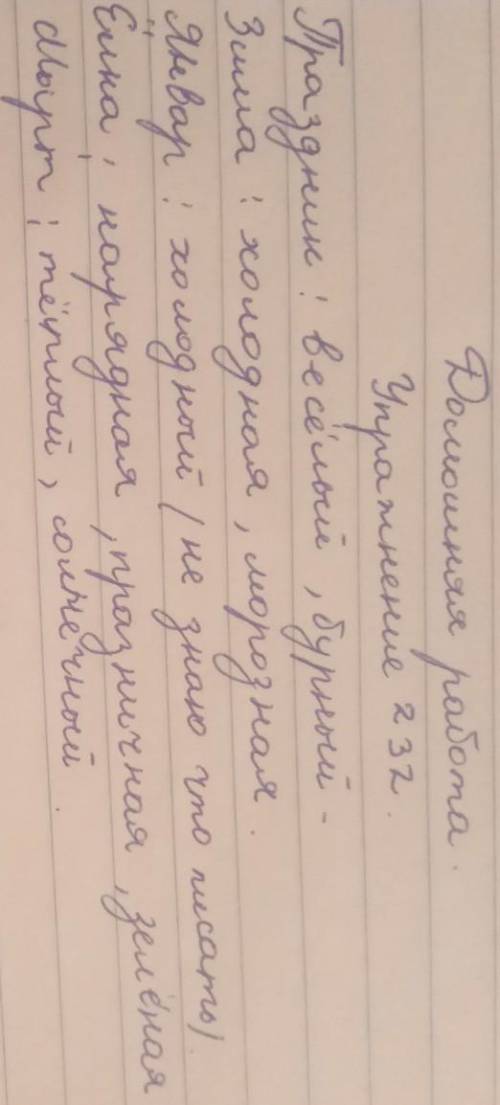 Домошняя работа.
Упражнение 232.
Праздник: весёлый, бурный-
Зима: холодная, морозная.
Январ: холодный (не знаю что писать)
Ёлка: нарядная, празничная, зелёная
Март: тёплый, солнечный.